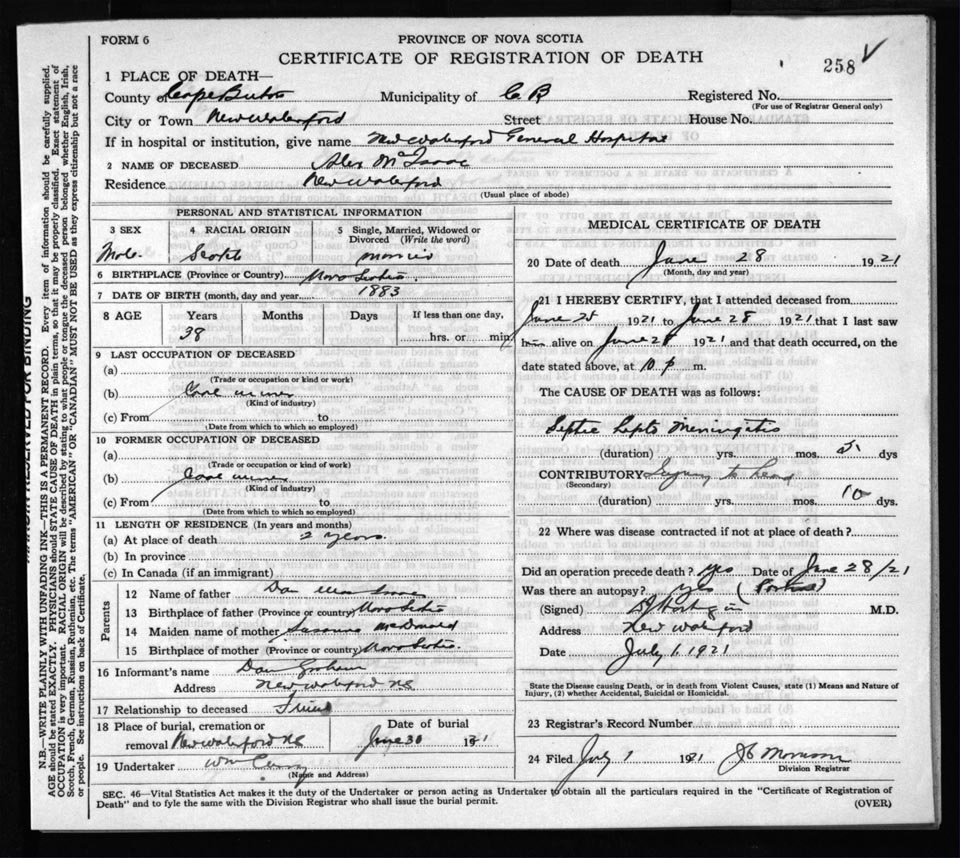 FORM 6
PROVINCE OF NOVA SCOTIA
CERTIFICATE OF REGISTRATION OF DEATH
258
1 PLACE OF DEATH—
County of Cape Breton Municipality of C B Registered No.
(For use of Registrar General only)
City or Town New Waterford Street House No.
If in hospital or institution, give name New Waterford General Hospital
2 NAME OF DECEASED Alex McIsaac
Residence New Waterford
(Usual place of abode)
PERSONAL AND STATISTICAL INFORMATION
3 SEX 4 RACIAL ORIGIN 5 Single, Married, Widowed or Divorced (Write the word)
Male Scotch Married
6 BIRTHPLACE (Province or Country) Nova Scotia
7 DATE OF BIRTH (month, day and year) 1883
8 AGE Years Months Days If less than one day,
38 hrs. or min.
9 LAST OCCUPATION OF DECEASED
(a)
(Trade or occupation or kind or work)
(b) Coal miner
(Kind of industry)
(c) From to
(Date from which to which so employed)
10 FORMER OCCUPATION OF DECEASED
(a)
(Trade or occupation or kind or work)
(b) Coal miner
(Kind of industry)
(c) From to
(Date from which to which so employed)
11 LENGTH OF RESIDENCE (In years and months)
(a) At place of death 2 years.
(b) In province
(c) In Canada (if an immigrant)
Parents
12 Name of father Dan Mac Isaac
13 Birthplace of father (Province or country) Nova Scotia
14 Maiden name of mother McDonald
15 Birthplace of mother (Province or country) Nova Scotia.
16 Informant's name Dan Graham
Address New Waterford NS
17 Relationship to deceased Friend
18 Place of burial, cremation or removal New Waterford NS Date of burial June 30 1921
19 Undertaker Wm
(Name and Address)
MEDICAL CERTIFICATE OF DEATH
20 Date of death June 28 1921
(Month, day and year)
21 I HEREBY CERTIFY, that I attended deceased from
June 25 1921 to June 28 1921 that I last saw
him alive on June 28 1921 and that death occurred, on the
date stated above, at 10 P m.
The CAUSE OF DEATH was as follows:
Septic Lepto Meningitis
(duration) yrs. mos. 5 dys
CONTRIBUTORY Injury to head
(Secondary)
(duration) yrs. mos. 10 dys.
22 Where was disease contracted if not at place of death?
Did an operation precede death? Yes Date of June 28/21
Was there an autopsy? Yes (Partial)
(Signed) M.D.
Address New Waterford
Date July 1. 1921
State the Disease causing Death, or in death from Violent Causes, state (1) Means and Nature of
Injury, (2) whether Accidental, Suicidal or Homicidal.
23 Registrar's Record Number
24 Filed July 1 1921 Morrison
Division Registrar
SEC. 46—Vital Statistics Act makes it the duty of the Undertaker or person acting as Undertaker to obtain all the particulars required in the "Certificate of Registration of
Death" and to fyle the same with the Division Registrar who shall issue the burial permit. (OVER)
RESERVED FOR BINDING
N.B.—WRITE PLAINLY WITH UNFADING INK—THIS IS A PERMANENT RECORD. Every item of information should be carefully supplied.
AGE should be stated EXACTLY. PHYSICIANS should STATE CAUSE OF DEATH in plain terms, so that it may be properly classified. Exact statement of
OCCUPATION is very important. RACIAL ORIGIN will be described by stating to what people or tongue the deceased person belonged whether English, Irish,
Scotch, French, German, Russian, Ruthenian, etc. The terms "AMERICAN" OR "CANADIAN" MUST NOT BE USED as they express citizenship but not a race
or people. See instructions on back of Certificate.